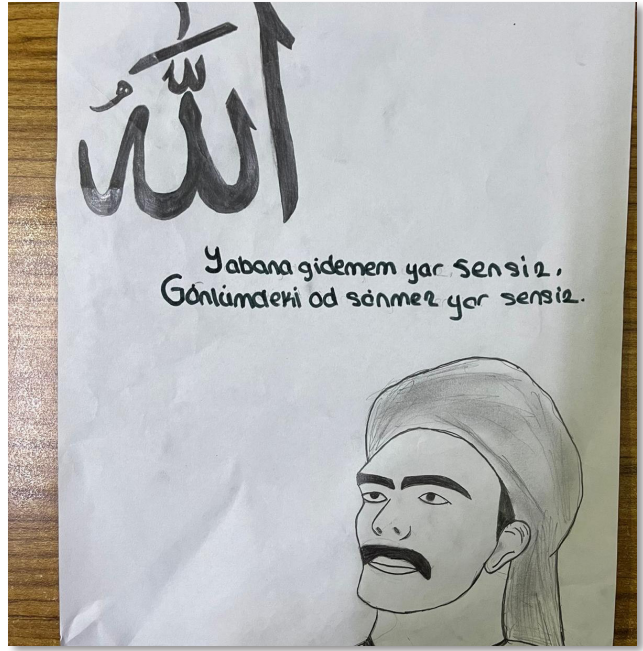 الله
Yabana gidemem yar sensiz,
Gönlümdeki od sönmez yar sensiz.